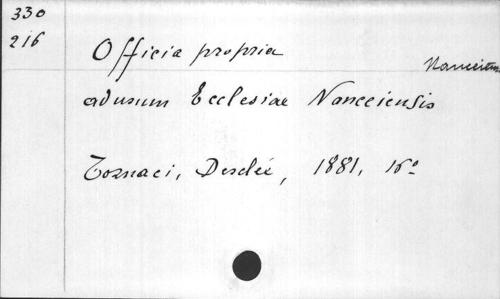 330
216
Officia propria
ad usum Ecclesiae Nanceiensis
Tornaci, Desclée, 1881, 16º